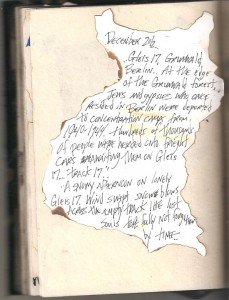 December 21st..
..Gleis 17. Grunewald
Berlin.. At the edge
of the Grunewald forest..
Jews and gypsies who once
resided in Berlin were deported
to concentration camps from
1941-1944. Hundreds of thousands
of people were herded onto freight
cars awaiting them on Gleis
17.. Track 17..
A snowy afternoon on lonely
Gleis 17. Wind swept snow blows
across the empty track like lost
souls not forgotten
by time..